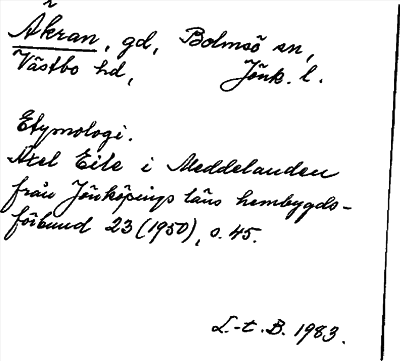 Åkran, gd, Bolmsö sn,
Västbo hd, Jönk. l.
Etymologi.
Axel Eile i Meddelanden
från Jönköpings läns hembygds-
förbund 23 (1950), s. 45.
L.-t. B. 1983.